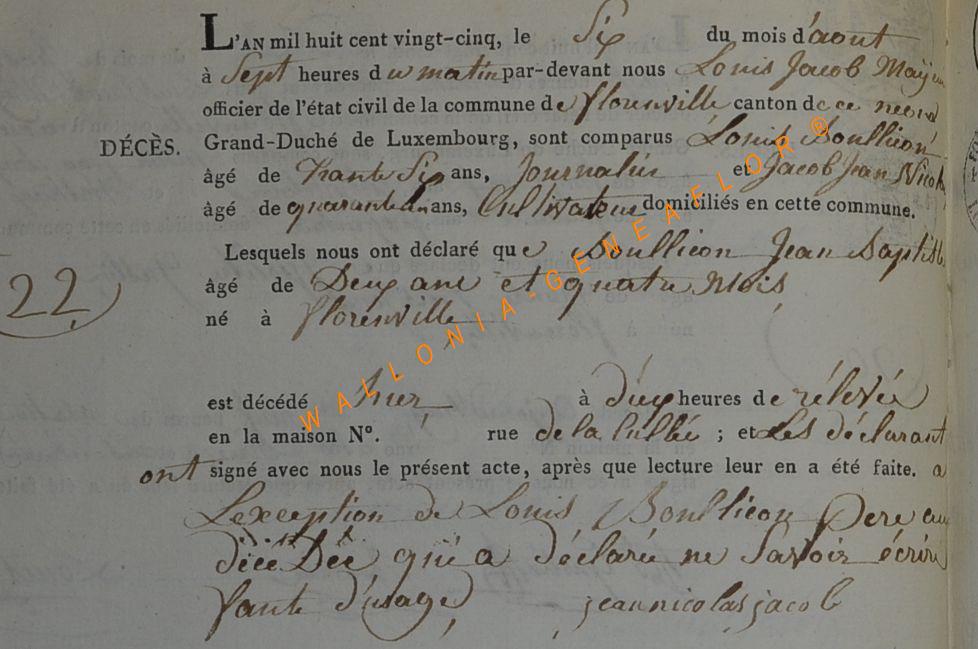 L'AN mil huit cent vingt-cinq, le Six du mois d'aout
à Sept heures du matin par-devant nous Louis Jacob
officier de l'état civil de la commune de florenville canton de ce
DÉCÈS. Grand-Duché de Luxembourg, sont comparus Louis Boullicon
âgé de trante Six ans, Journalier et Jacob Jean Nicolas
âgé de quarante ans, Cultivateur domiciliés en cette commune.
Lesquels nous ont déclaré que Boullicon Jean Baptiste
22
âgé de Deux ans et quatre Mois
né à florenville
est décédé hier à dix heures de rélevée
en la maison N°. rue de la ; et Les déclarant
ont signé avec nous le présent acte, après que lecture leur en a été faite. a
L'exception de Louis Boullicon Pere au
décédée qui a déclarée ne Savoir écrire
faute d'usage jeannicolas jacob
WALLONIA-GENEAFLOR ®